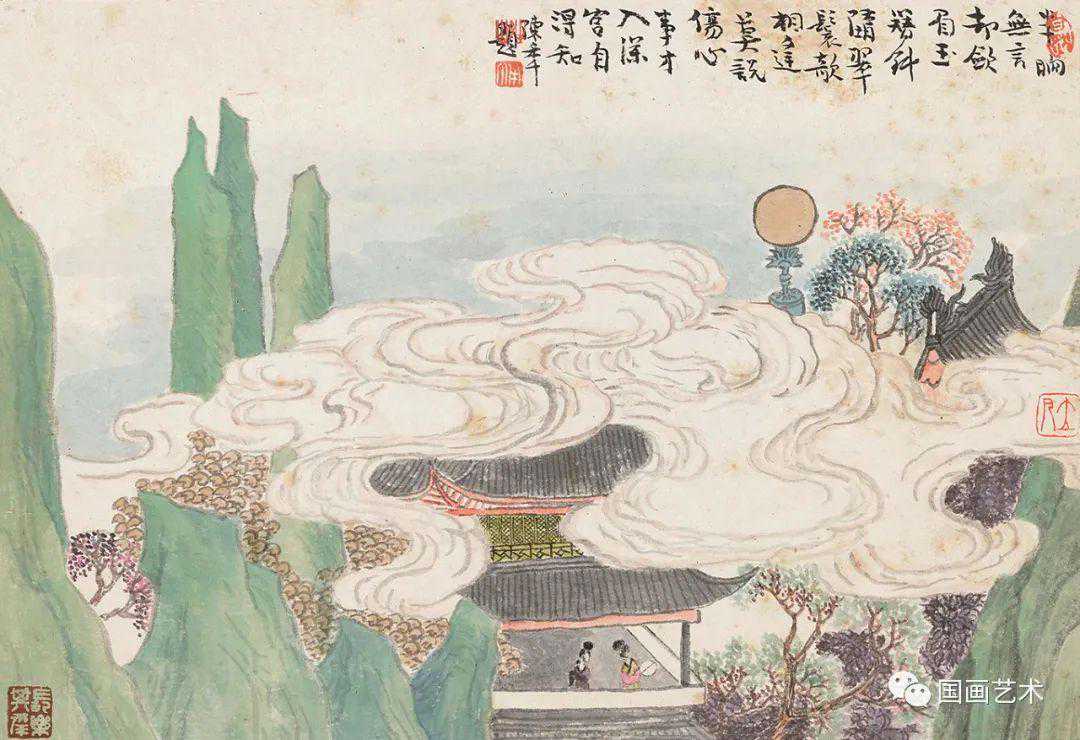 半晌
無言
却斂
眉玉
簪斜
溜翠
鬟欹
相逢
莫說
傷心
事才
入深
宮自
得知
陳
題
国画艺术